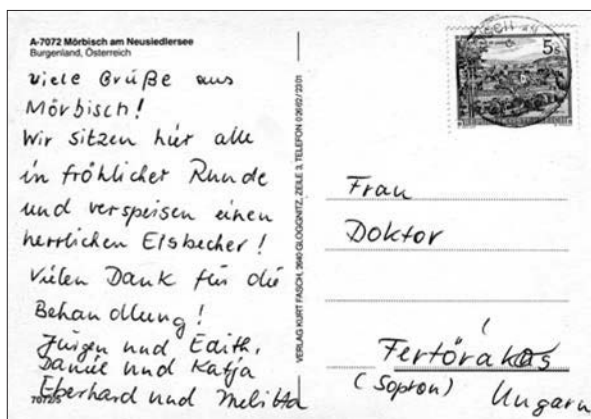 A-7072 Mörbisch am Neusiedlersee
Burgenland, Österreich
viele Grüße aus
Mörbisch!
Wir sitzen hier alle
in fröhlicher Runde
und verspeisen einen
herrlichen Eisbecher!
Vielen Dank für die
Behandlung!
Jürgen und Edith,
Daniel und Katja
Eberhard und Melitta
7072/5
VERLAG KURT FASCH, 2640 GLOGGNITZ, ZEILE 3, TELEFON 02662/2301
5s
Frau
Doktor
Fertörákos
(Sopron) Ungarn